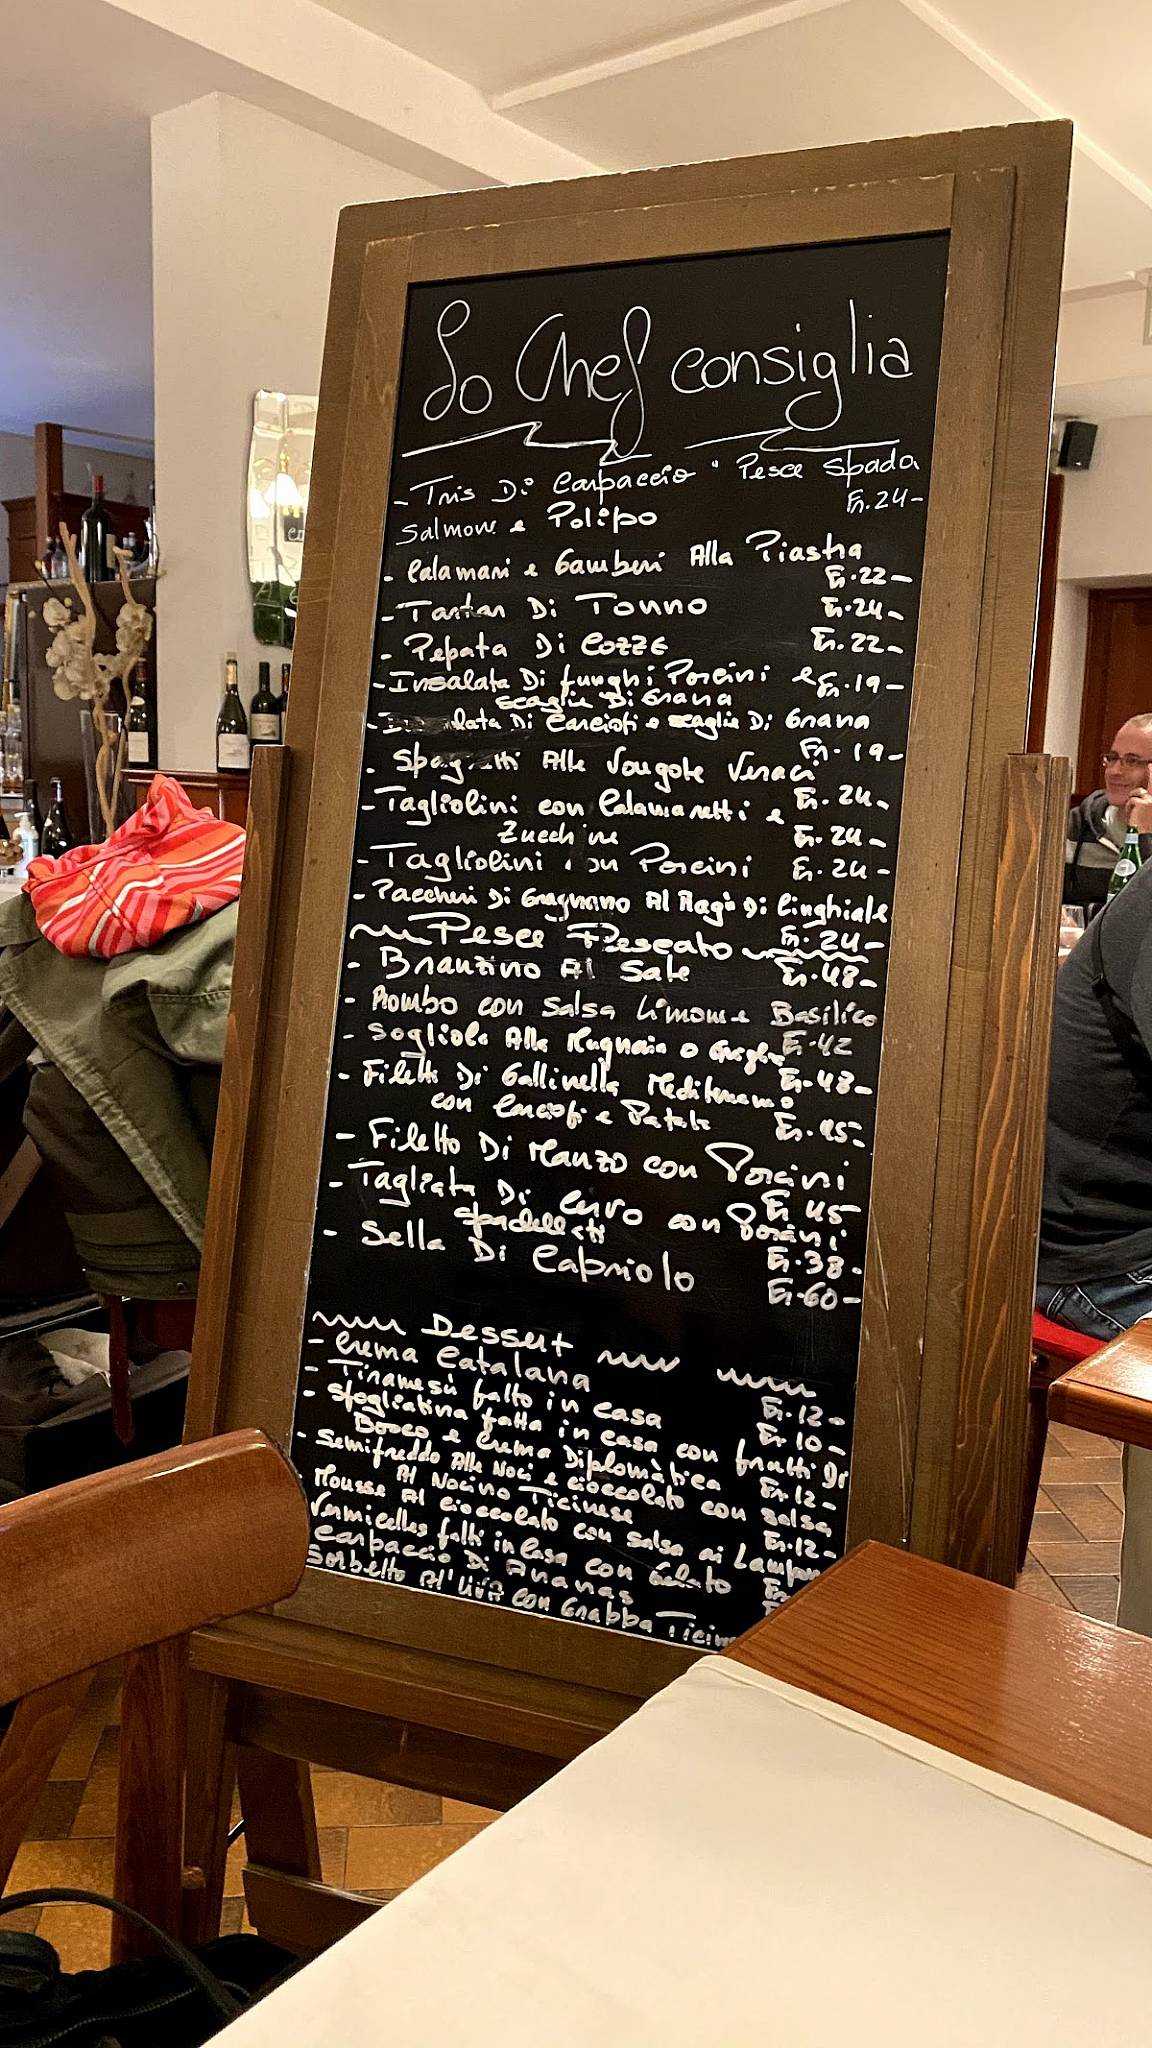 Lo Chef consiglia
- Tris Di Carpaccio " Pesce Spada
Salmone e Polipo Fr. 24-
- Calamari e Gamberi Alla Piastra
Fr. 22-
- Tartar Di Tonno Fr. 24-
- Pepata Di Cozze Fr. 22-
- Insalata Di funghi Porcini e Fr. 19-
scaglie Di Grana
- Di Carciofi e scaglie Di Grana
Fr. 19-
- Spaghetti Alle Vongole Veraci
Fr. 24-
- Tagliolini con Calamaretti e
Zucchine Fr. 24-
- Tagliolini con Porcini Fr. 24-
- Paccheri Di Gragnano Al Ragù Di Cinghiale
Fr. 24-
Pesce Pescato
- Branzino Al Sale Fr. 48-
- Rombo con salsa Limone e Basilico
Fr. 42
- Sogliola Alla Mugnaia o Griglia
Fr. 48-
- Filetti Di Gallinella Mediterraneo
con Carciofi e Patate Fr. 45-
- Filetto Di Manzo con Porcini
Fr. 45-
- Tagliata Di Cervo con Porcini
spadellati Fr. 38-
- Sella Di Capriolo Fr. 60-
Dessert
- Crema Catalana Fr. 12-
- Tiramesù fatto in casa Fr. 10-
- Sfogliatina fatta in casa con frutti Di
Bosco e Crema Diplomàtica Fr. 12-
- Semifreddo Alle Noci e cioccolato con salsa
Al Nocino Ticinese Fr. 12-
Mousse Al cioccolato con salsa ai
Vermicelles fatti in Casa con Gelato Fr.
Carpaccio Di Ananas
Sorbetto Al' UVA con Grabba